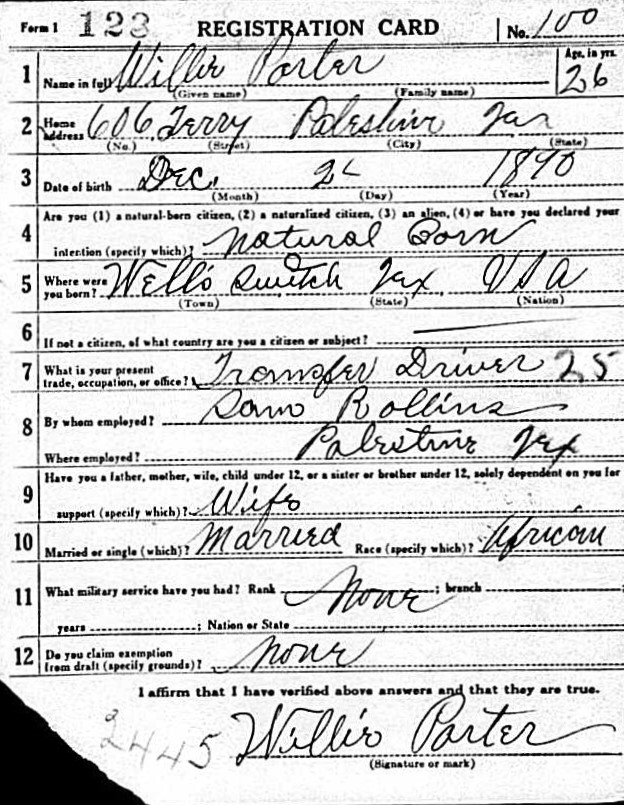 Form 1 123 REGISTRATION CARD No. 100
1 Name in full Willie Porter Age, in yrs. 26
(Given name) (Family name)
2 Home address 606 Terry Palestine Tex
(No.) (Street) (City) (State)
3 Date of birth Dec. 1890
(Month) (Day) (Year)
Are you (1) a natural-born citizen, (2) a naturalized citizen, (3) an alien, (4) or have you declared your
4 intention (specify which)? Natural Born
5 Where were you born? Wells Switch Tex USA
(Town) (State) (Nation)
6 If not a citizen, of what country are you a citizen or subject?
7 What is your present trade, occupation, or office? Transfer Driver 25
8 By whom employed? Sam Rollins
Where employed? Palestine Tex
Have you a father, mother, wife, child under 12, or a sister or brother under 12, solely dependent on you for
9 support (specify which)? Wife
10 Married or single (which)? Married Race (specify which)? African
11 What military service have you had? Rank None ; branch
years ; Nation or State
12 Do you claim exemption from draft (specify grounds)? None
I affirm that I have verified above answers and that they are true.
2445 Willie Porter
(Signature or mark)